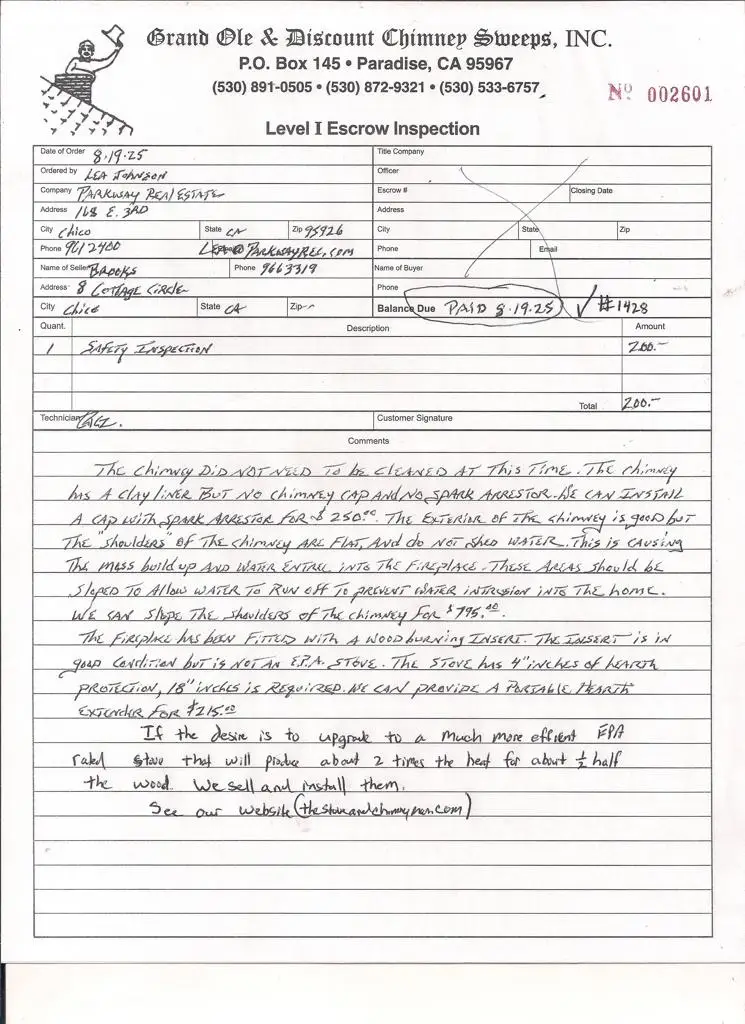 Grand Ole & Discount Chimney Sweeps, INC.
P.O. Box 145 • Paradise, CA 95967
(530) 891-0505 • (530) 872-9321 • (530) 533-6757
Nº 002601
Level I Escrow Inspection
Date of Order 8.19.25 Title Company
Ordered by LEA JOHNSON Officer
Company PARKWAY REAL ESTATE Escrow # Closing Date
Address 168 E. 3RD Address
City Chico State CA Zip 95926 City State Zip
Phone 961 2400 LEA@PARKWAYREC.COM Phone Email
Name of Seller BROOKS Phone 966 3319 Name of Buyer
Address 8 COTTAGE CIRCLE Phone
City Chico State CA Zip Balance Due PAID 8.19.25 ✓ #1428
Quant. Description Amount
1 SAFETY INSPECTION 200.-
Total 200.-
Technician Customer Signature
Comments
THE CHIMNEY DID NOT NEED TO BE CLEANED AT THIS TIME. THE CHIMNEY
HAS A CLAY LINER BUT NO CHIMNEY CAP AND NO SPARK ARRESTOR. WE CAN INSTALL
A CAP WITH SPARK ARRESTOR FOR $250.00. THE EXTERIOR OF THE CHIMNEY IS GOOD BUT
THE "SHOULDERS" OF THE CHIMNEY ARE FLAT, AND DO NOT SHED WATER. THIS IS CAUSING
THE MASS BUILD UP AND WATER ENTREE INTO THE FIREPLACE. THESE AREAS SHOULD BE
SLOPED TO ALLOW WATER TO RUN OFF TO PREVENT WATER INTRUSION INTO THE HOME.
WE CAN SLOPE THE SHOULDERS OF THE CHIMNEY FOR $795.00.
THE FIREPLACE HAS BEEN FITTED WITH A WOOD BURNING INSERT. THE INSERT IS IN
GOOD CONDITION BUT IS NOT AN E.P.A. STOVE. THE STOVE HAS 4" INCHES OF HEARTH
PROTECTION, 18" INCHES IS REQUIRED. WE CAN PROVIDE A PORTABLE HEARTH
EXTENDER FOR $215.00
If the desire is to upgrade to a much more efficent EPA
rated stove that will produce about 2 times the heat for about ½ half
the wood. We sell and install them.
See our website (thestoveandchimneyman.com)